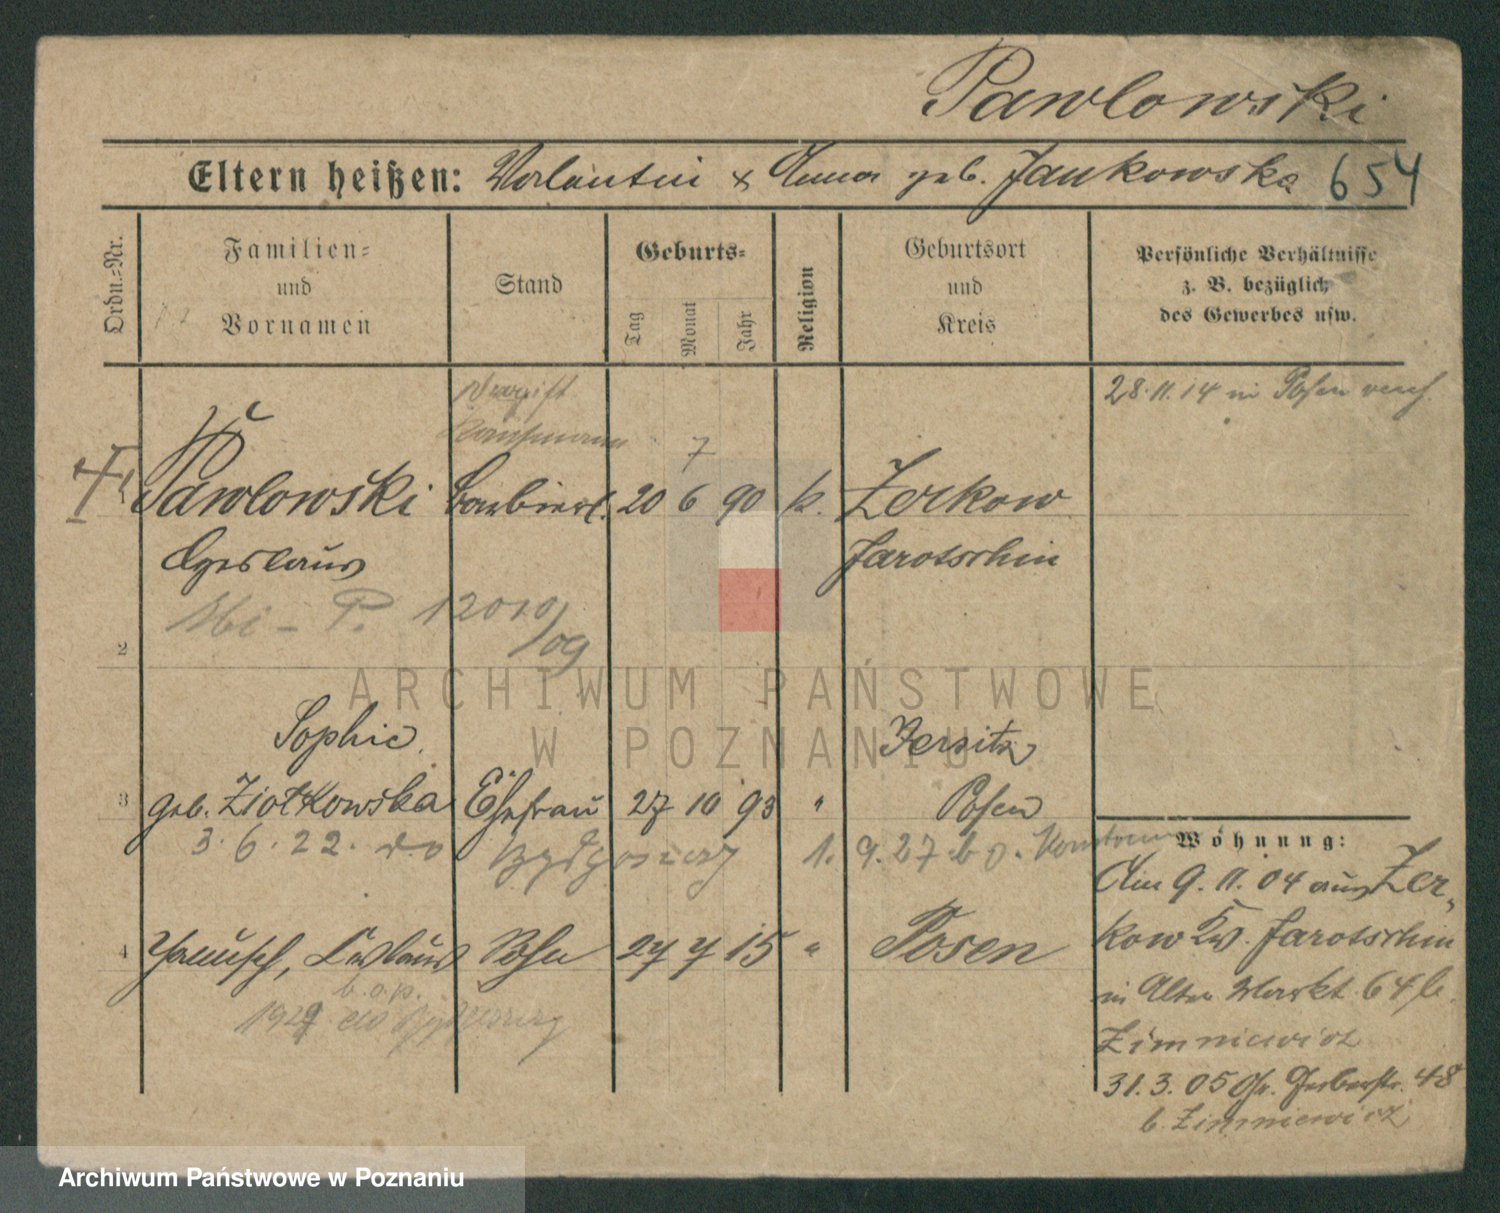 Pawlowski
Eltern heißen: Valentin & Anna geb. Jankowska 654
Ordn.=Nr.
Familien=
und
Vornamen
Stand
Geburts=
Tag
Monat
Jahr
Religion
Geburtsort
und
Kreis
Persönliche Verhältnisse
z. B. bezüglich
des Gewerbes usw.
28.11.14 in Posen verh.
Kaufmann
7
Pawlowski Barbierl. 20 6 90 k. Zerkow
Jarotschin
P. 12010/09
2
ARCHIWUM PAŃSTWOWE
W POZNANIU
Sophie Jersitz
3 geb. Ziolkowska Ehefrau 27 10 93 " Posen
3.6.22. do Bydgoszczy 1.9.27 b.
Wohnung:
Am 9.11.04 aus Zer-
kow Kr. Jarotschin
in Alter Markt 64 b.
Zimniewicz
31.3.05 Gr. Gerberstr. 48
b. Zimniewicz
4 Sohn 27 7 15 " Posen
b.o.p.
Archiwum Państwowe w Poznaniu